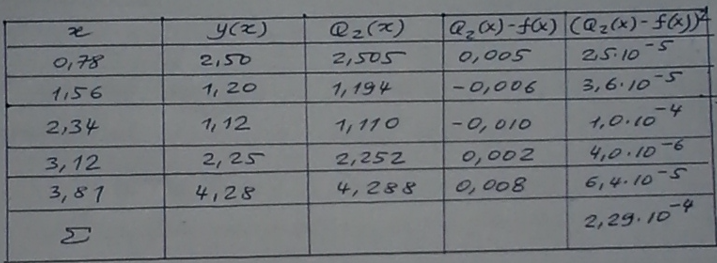 x y(x) Q₂(x) Q₂(x)-f(x) (Q₂(x)-f(x))²
0,78 2,50 2,505 0,005 2,5·10⁻⁵
1,56 1,20 1,194 -0,006 3,6·10⁻⁵
2,34 1,12 1,110 -0,010 1,0·10⁻⁴
3,12 2,25 2,252 0,002 4,0·10⁻⁶
3,81 4,28 4,288 0,008 6,4·10⁻⁵
Σ 2,29·10⁻⁴